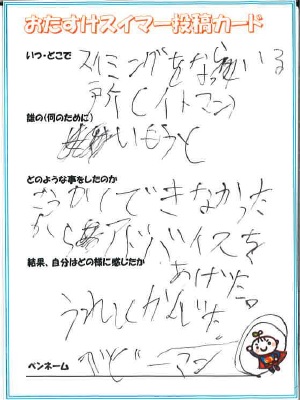 おたすけスイマー投稿カード
いつ・どこで
スイミングをならっている
所(イトマン)
誰の(何のために)
いもうと
どのような事をしたのか
できなかった
からアドバイスを
結果、自分はどの様に感じたか
あげた。
うれしくかんじた。
ペンネーム